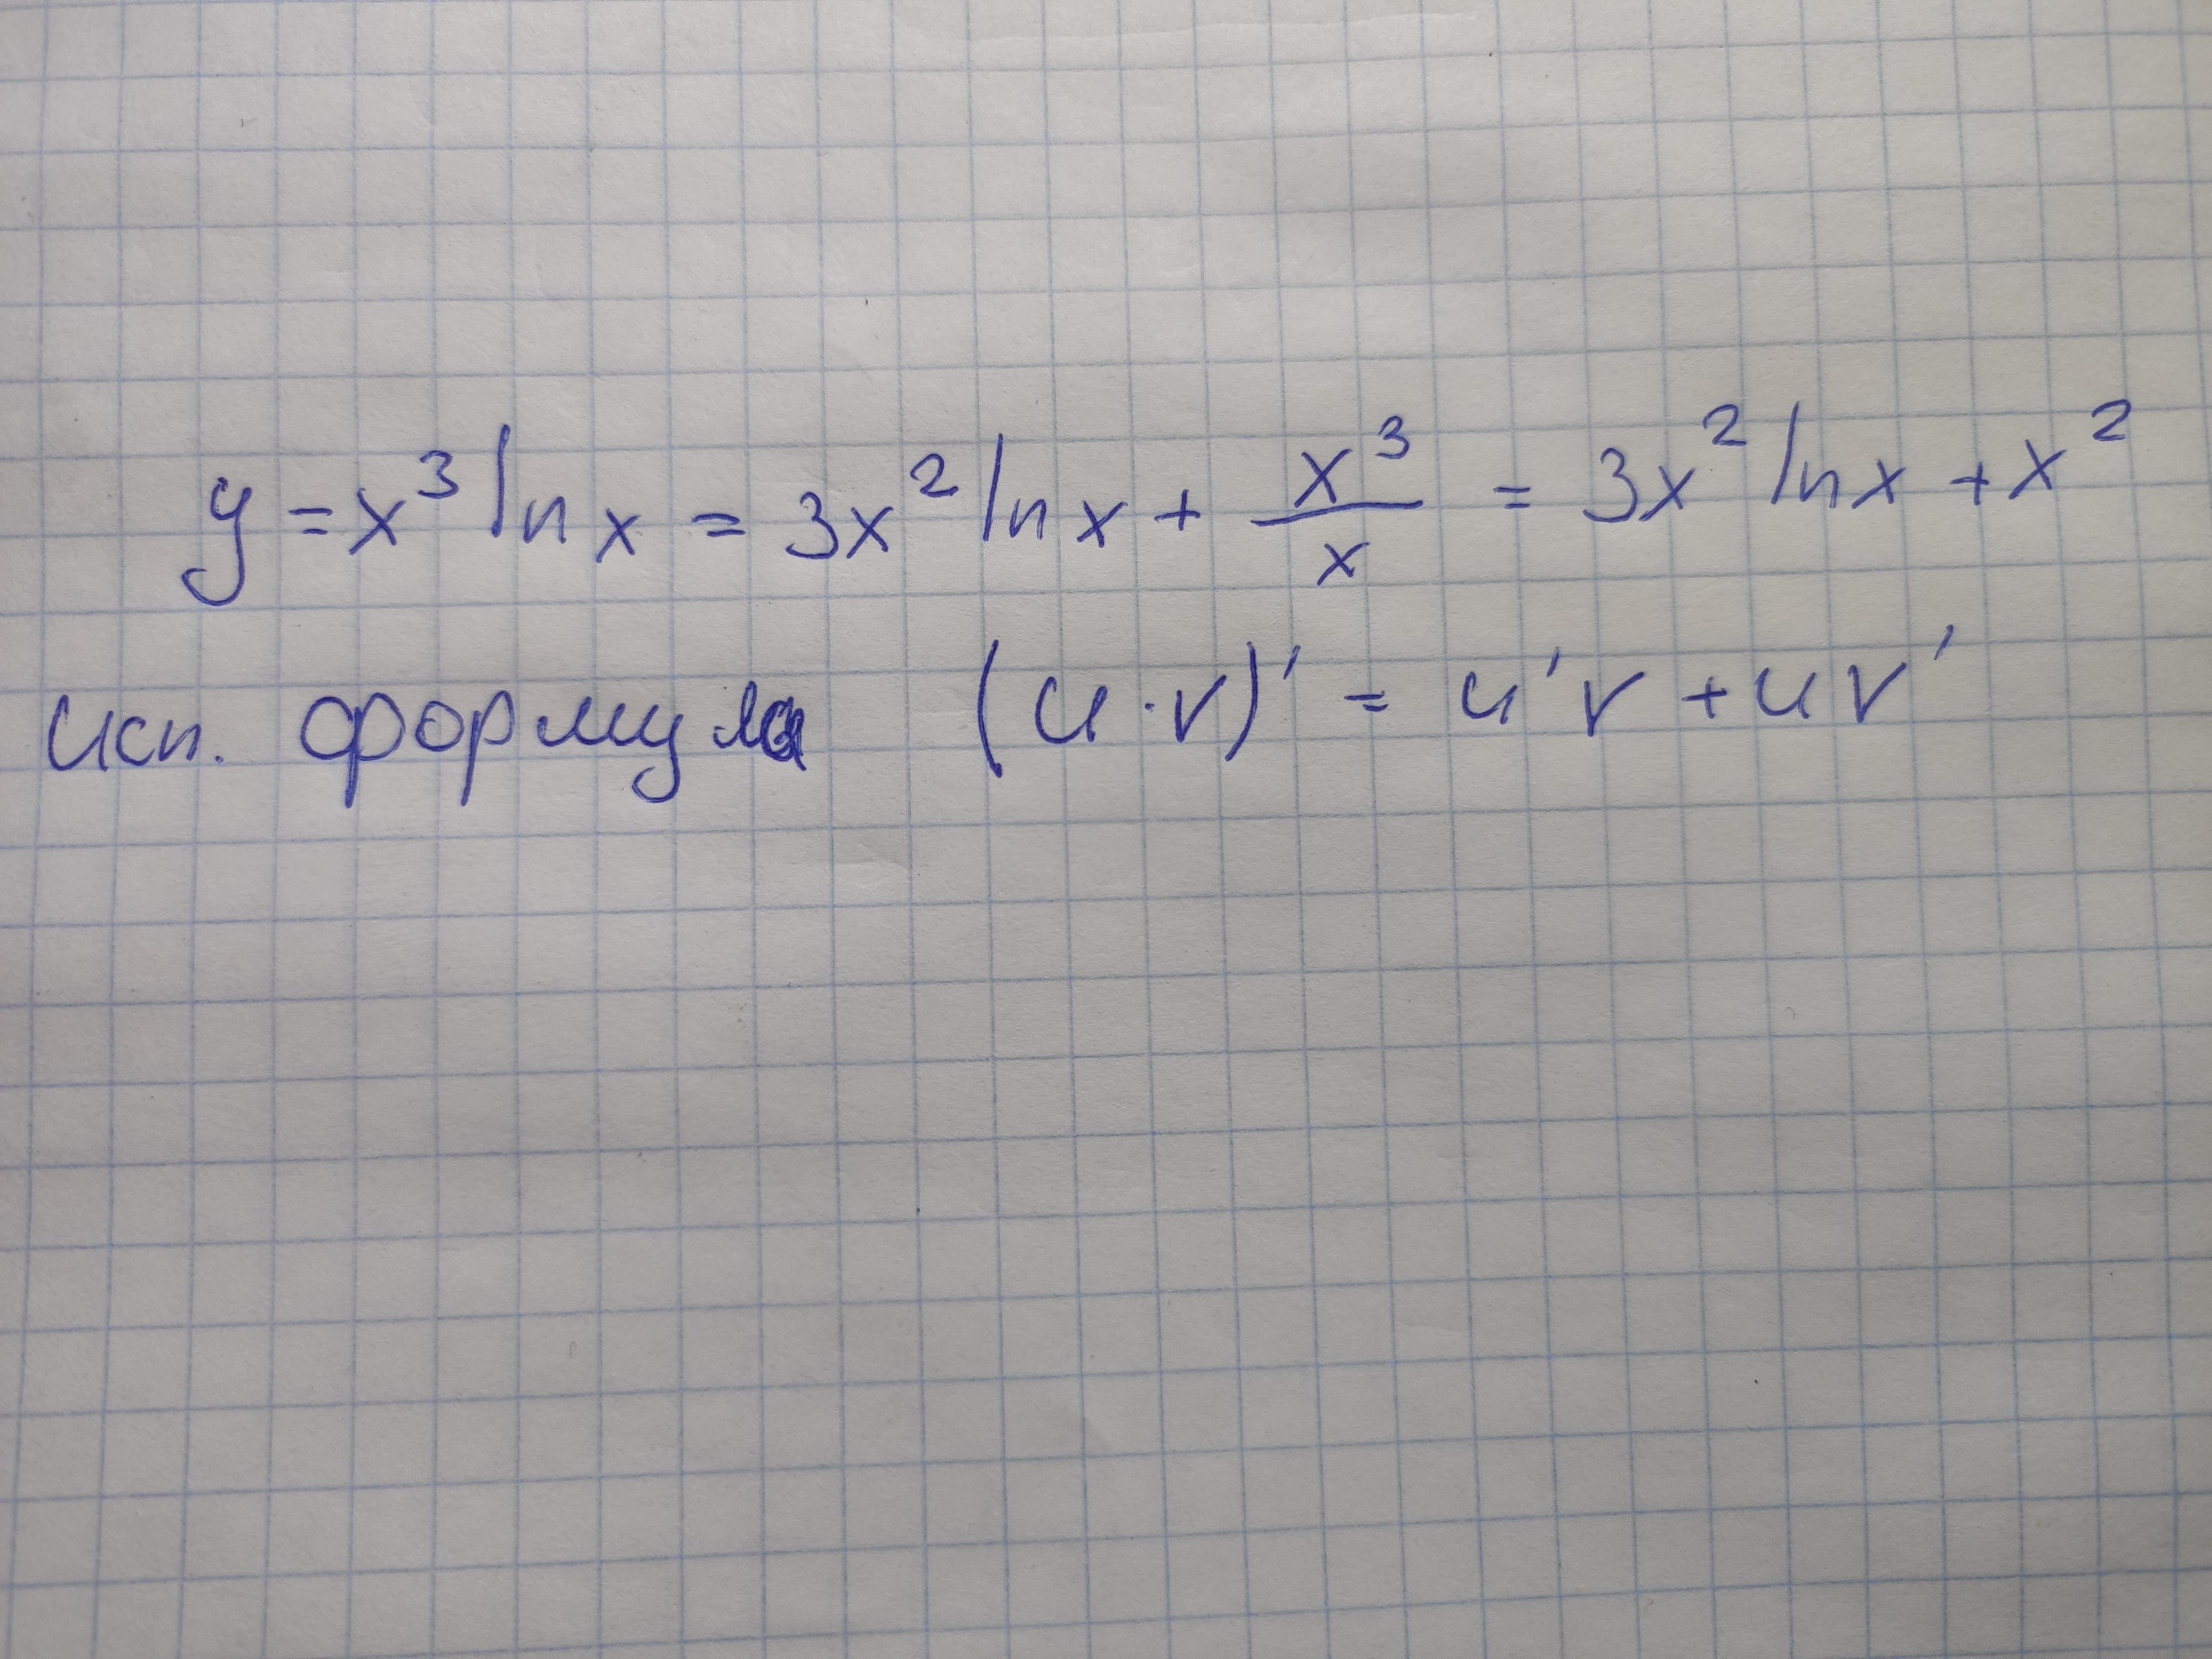 y = x³ ln x = 3x² ln x + x³/x = 3x² ln x + x²
исп. формула (u · v)' = u'v + uv'